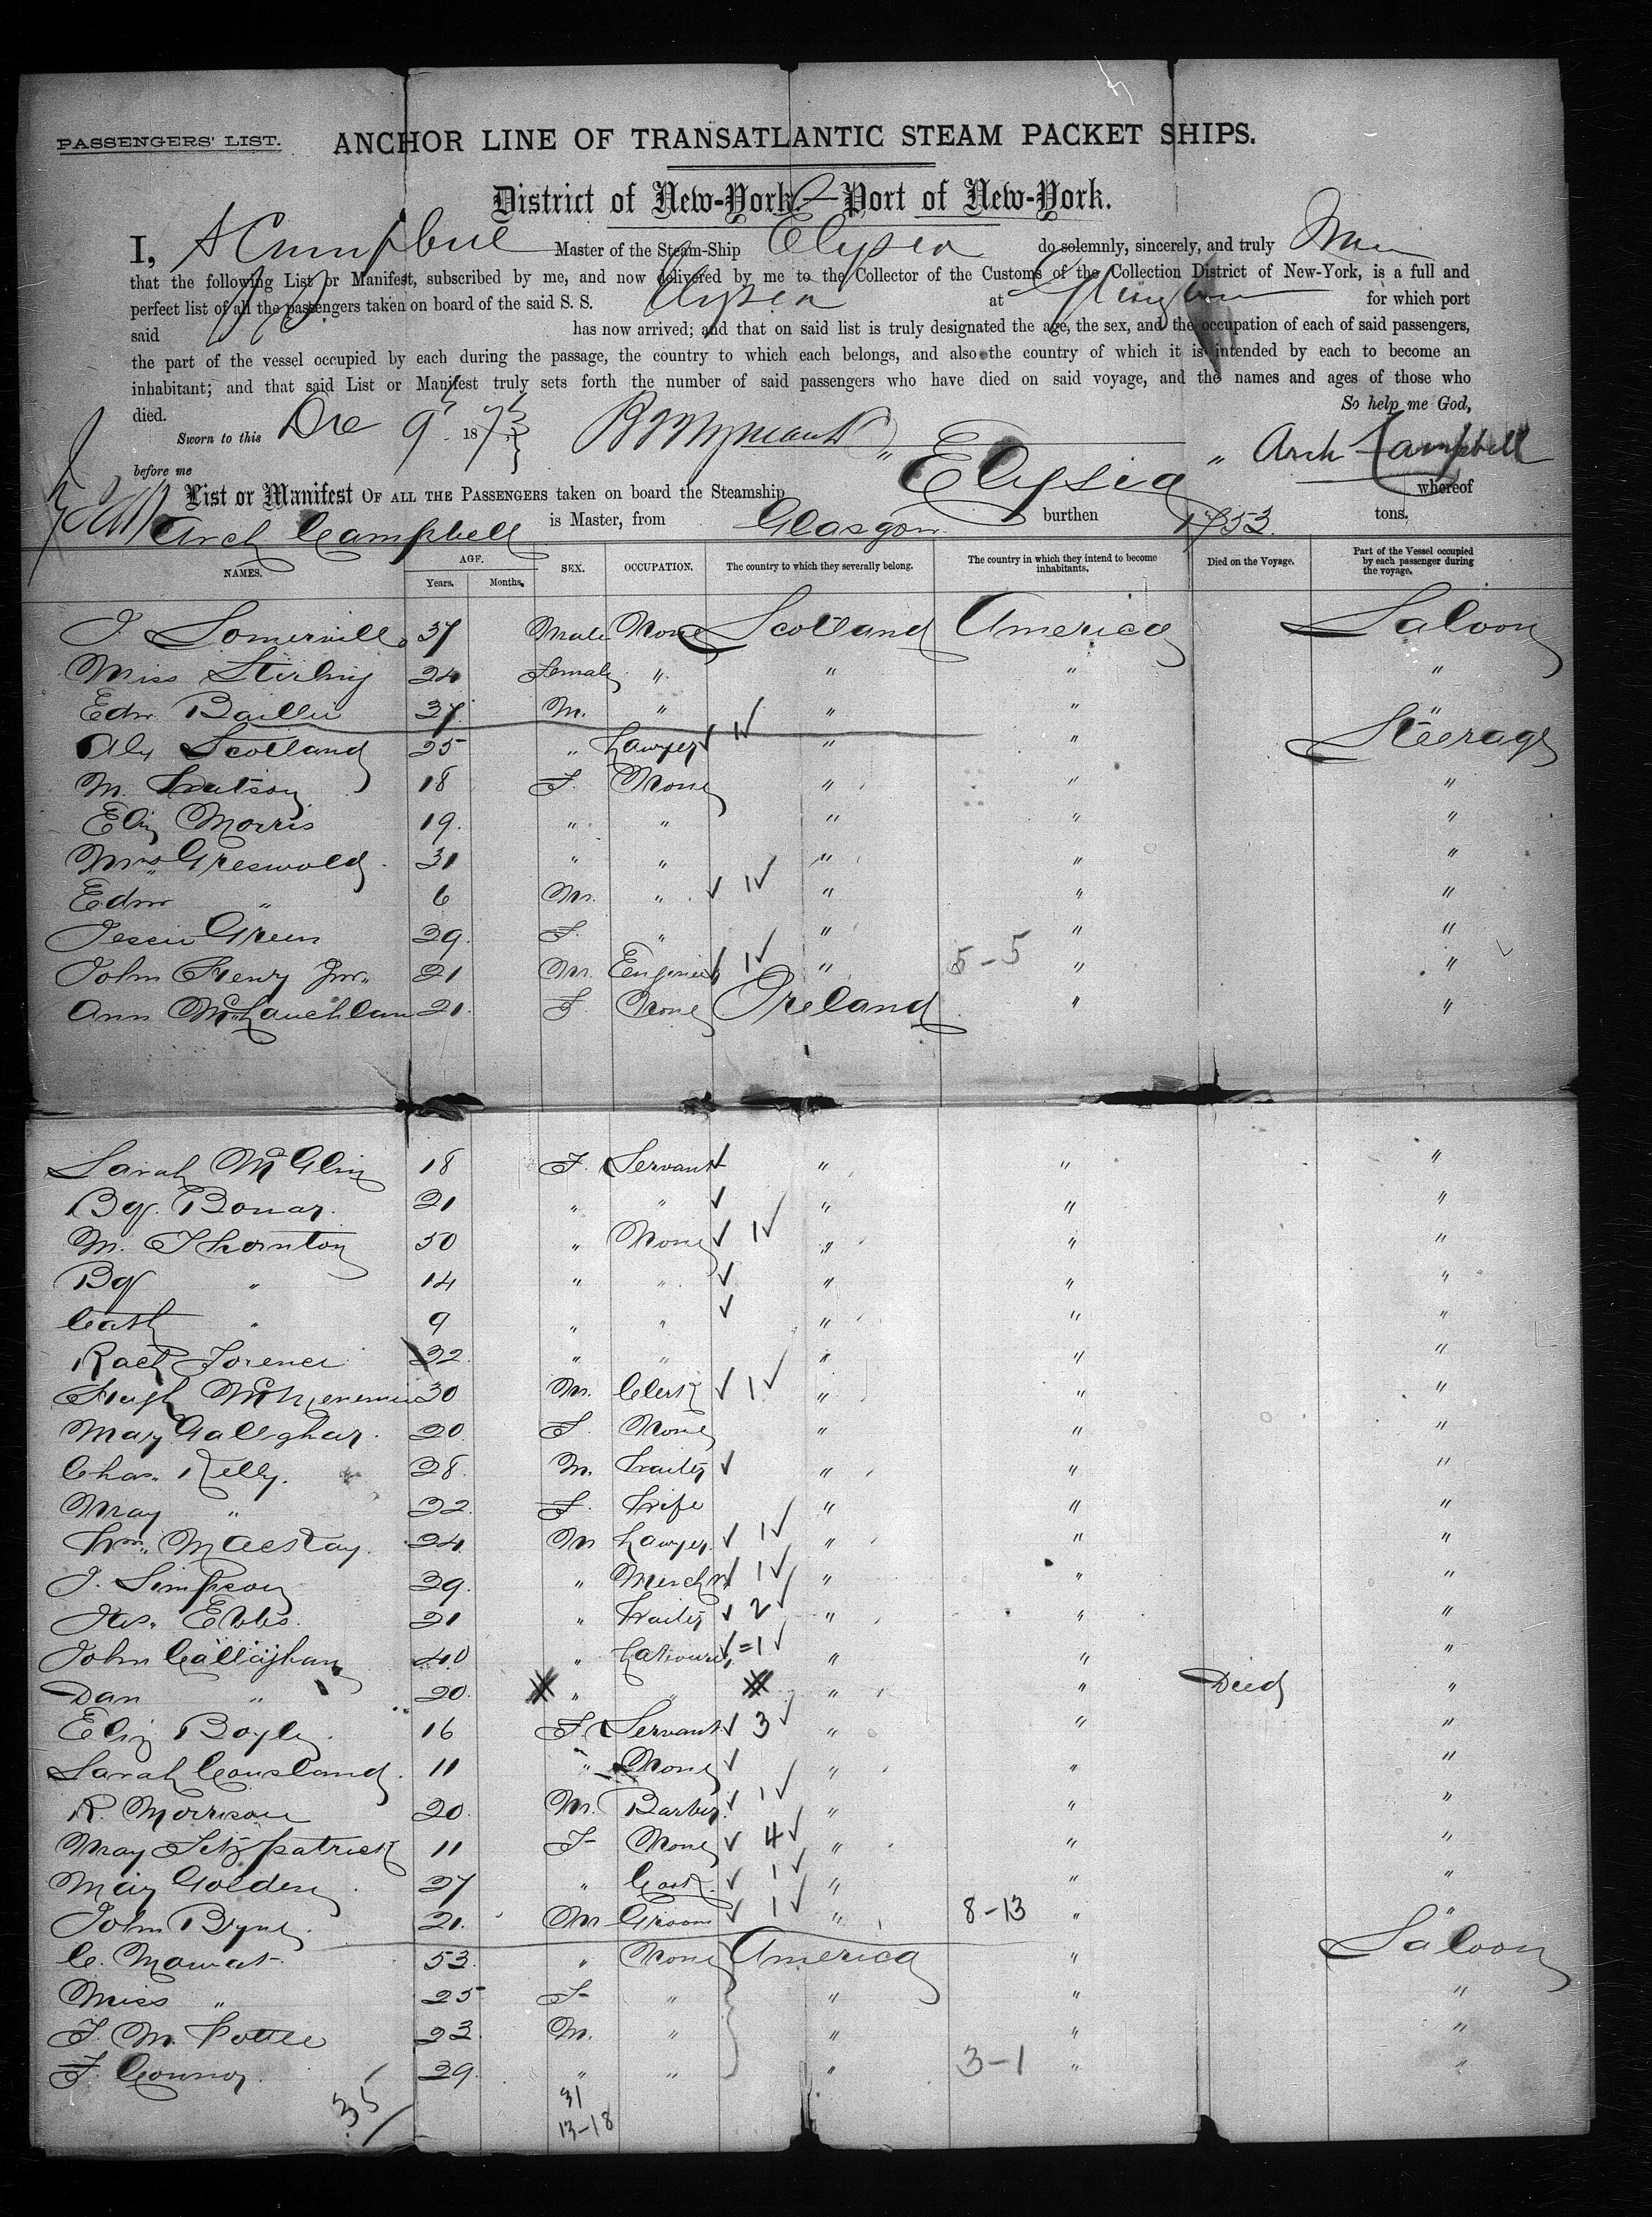 PASSENGERS' LIST. ANCHOR LINE OF TRANSATLANTIC STEAM PACKET SHIPS.
District of New-York.—Port of New-York.
I, A Campbell Master of the Steam-Ship Elysia do solemnly, sincerely, and truly
that the following List or Manifest, subscribed by me, and now delivered by me to the Collector of the Customs of the Collection District of New-York, is a full and
perfect list of all the passengers taken on board of the said S. S. Elysia at Glasgow for which port
said has now arrived; and that on said list is truly designated the age, the sex, and the occupation of each of said passengers,
the part of the vessel occupied by each during the passage, the country to which each belongs, and also the country of which it is intended by each to become an
inhabitant; and that said List or Manifest truly sets forth the number of said passengers who have died on said voyage, and the names and ages of those who
died. So help me God,
Sworn to this Dec 9 1873 " Arch Campbell
before me
List or Manifest OF ALL THE PASSENGERS taken on board the Steamship " Elysia " whereof
Arch Campbell is Master, from Glasgow burthen 1753 tons.
NAMES. AGE. Years. Months. SEX. OCCUPATION. The country to which they severally belong. The country in which they intend to become inhabitants. Died on the Voyage. Part of the Vessel occupied by each passenger during the voyage.
J. Somerville 37 Male None Scotland America Saloon
Miss Stirling 24 Female " " " "
Edw Baillie 37 M. " " " "
Alex Scotland 25 " Lawyer ✓ 1✓ " " Steerage
M. Watson 18 F. None " " "
Eliz Morris 19. " " " " "
Mrs Greswold. 31 " " " " "
Edw " 6 M. " ✓ 1✓ " " "
Jessie Green 29. F. " " " "
John Henry Jnr. 21 M. Engineer ✓ 1✓ " 5-5 " "
Ann McLauchlan 21. F None Ireland " "
Sarah McGlin 18 F. Servant ✓ " " "
Bgt. Bonar. 21 " " ✓ " " "
M. Thornton 50 " None ✓ 1✓ " " "
Bgt " 14 " " ✓ " " "
Cath " 9 " " ✓ " " "
Rach 32. " " " " "
Hugh 30 M. Clerk ✓ 1✓ " " "
Mary Galleghar. 20. F. None " " "
Chas. Kelly. 28. M. Waiter ✓ " " "
Mary " 22. F. Wife " " "
Wm. MacKay. 24. M Lawyer. ✓ 1✓ " " "
J. Simpson 29. " Mercht ✓ 1✓ " " "
Jas. Ebbs. 21 " Waiter ✓ 2✓ " " "
John Callaghan 40 " Labourer ✓ =1✓ " " "
Dan " 20. " " " " Died "
Eliz Boyle. 16 F. Servant ✓ 3✓ " " "
Sarah Cousland. 11 " None ✓ " " "
R. Morrison 20. M. Barber. ✓ 1✓ " " "
Mary Fitzpatrick 11 F None ✓ 4✓ " " "
Mary Golden. 27 " Cook. ✓ 1✓ " " "
John Byrne. 21. M Groom ✓ 1✓ " 8-13 " "
C. Mowat. 53. " None America " Saloon
Miss " 25 F " " " "
F. M. Pottle 23. M. " " " "
F. Connor. 29. " " " 3-1 " "
35
31
13-18